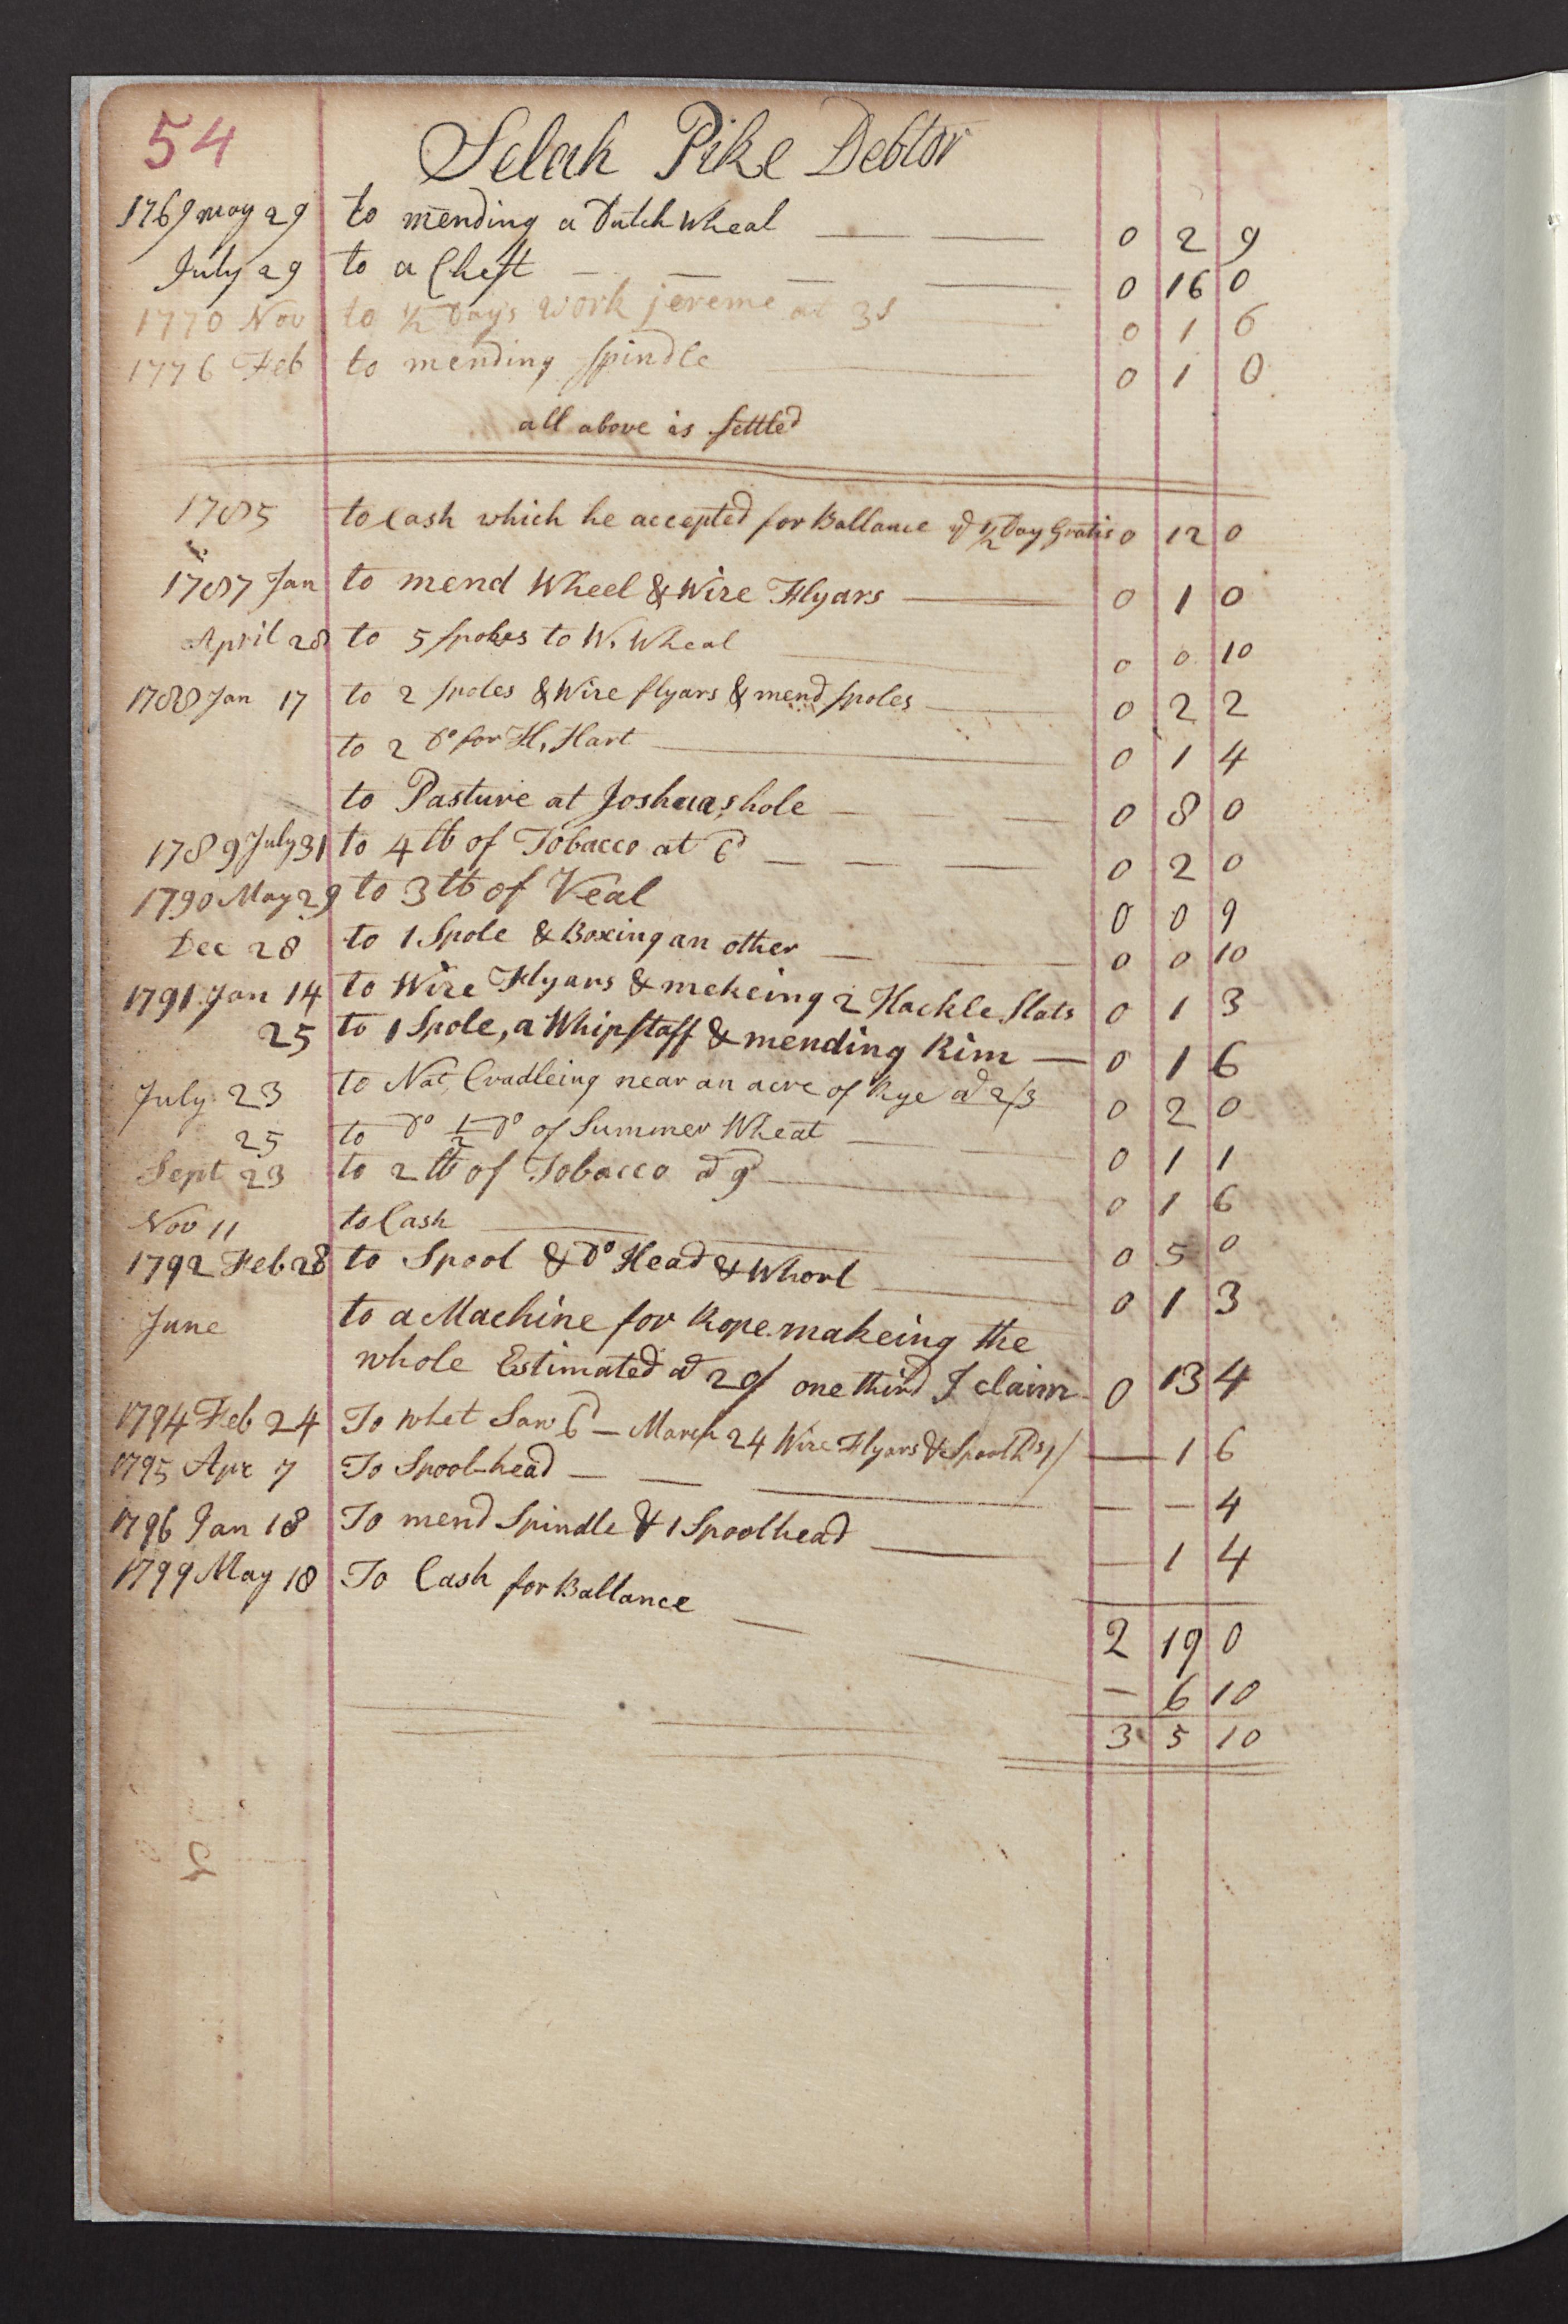 54 Selah Pike Debtor
1769 may 29 to mending a Dutch Wheal 0 2 9
July 29 to a Chest 0 16 0
1770 Nov to 1/2 Days work jereme at 3s 0 1 6
1776 Feb to mending spindle 0 1 0
all above is settled
1785 to Cash which he accepted for Ballance & 1/2 Day Gratis 0 12 0
1787 Jan to mend Wheel & Wire Flyars 0 1 0
April 28 to 5 spokes to W. Wheal 0 0 10
1788 Jan 17 to 2 spoles & Wire flyars & mend spoles 0 2 2
to 2 Do for H. Hart 0 1 4
to Pasture at Joshuas hole 0 8 0
1789 July 31 to 4 lb of Tobacco at 6d 0 2 0
1790 May 29 to 3 lb of Veal 0 0 9
Dec 28 to 1 Spole & Boxing an other 0 0 10
1791 Jan 14 to Wire Flyars & mekeing 2 Hackle Slats 0 1 3
25 to 1 Spole, a Whipstaff & mending Rim 0 1 6
July 23 to Nat. Cradleing near an acre of Rye ad 2/3 0 2 0
25 to Do 1/2 Do of Summer Wheat 0 1 1
Sept 23 to 2 lb of Tobacco ad 9d 0 1 6
Nov 11 to Cash 0 5 0
1792 Feb 28 to Spool & Do Head & Whorl 0 1 3
June to a Machine for Rope makeing the
whole Estimated ad 20/ one third I claim 0 13 4
1794 Feb 24 To whet Saw 6d — March 24 Wire Flyars & Spool hds 1/ — 1 6
1795 Apr 7 To Spool-head — — 4
1796 Jan 18 To mend Spindle & 1 Spoolhead — 1 4
1799 May 18 To Cash for Ballance
2 19 0
— 6 10
3 5 10